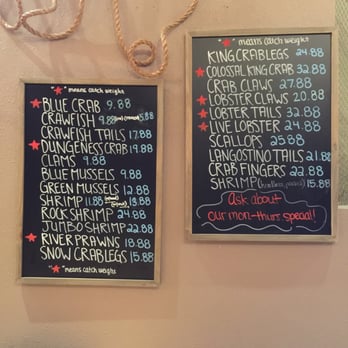 "★" means catch weight
★ BLUE CRAB 9.88
CRAWFISH 9.88 5.88
CRAWFISH TAILS 17.88
★ DUNGENESS CRAB 19.88
CLAMS 9.88
BLUE MUSSELS 9.88
GREEN MUSSELS 12.88
SHRIMP 11.88 13.88
ROCK SHRIMP 24.88
JUMBO SHRIMP 22.88
★ RIVER PRAWNS 18.88
SNOW CRAB LEGS 15.88
"★" means catch weight
"★" means catch weight
KING CRAB LEGS 24.88
★ COLOSSAL KING CRAB 32.88
CRAB CLAWS 27.88
★ LOBSTER CLAWS 20.88
★ LOBSTER TAILS 32.88
★ LIVE LOBSTER 24.88
SCALLOPS 25.88
LANGOSTINO TAILS 21.88
CRAB FINGERS 22.88
SHRIMP (headless, peeled) 15.88
Ask about
our mon-thurs special!!